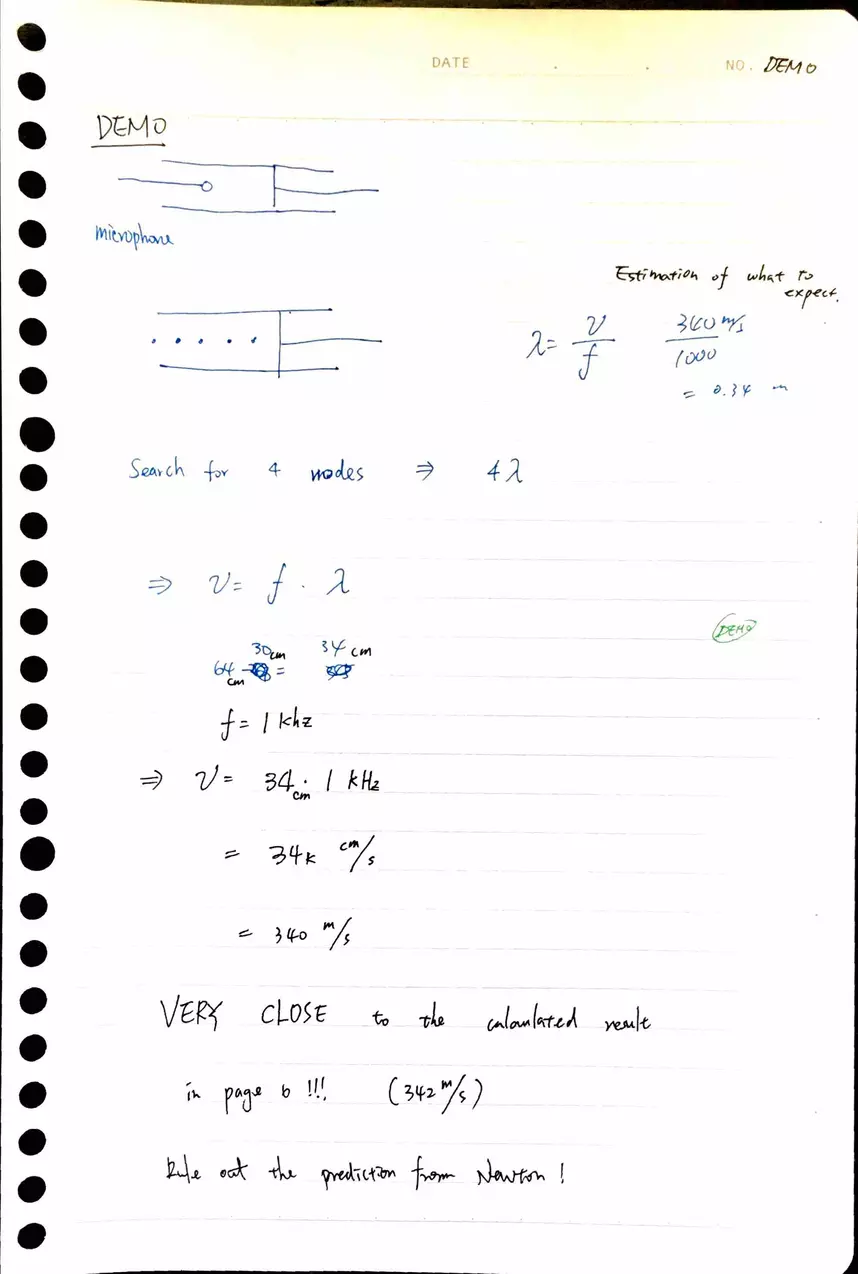 DATE . . NO. DEMO
DEMO
microphone
Estimation of what to
expect.
λ= v/f 340 m/s / 1000
= 0.34 m
Search for 4 nodes ⇒ 4λ
⇒ v= f · λ
DEMO
64 cm - 30 cm = 34 cm
f= 1 khz
⇒ v= 34 cm · 1 kHz
= 34k cm/s
= 340 m/s
VERY CLOSE to the calculated result
in page 6 !!! (342 m/s)
Rule out the prediction from Newton !